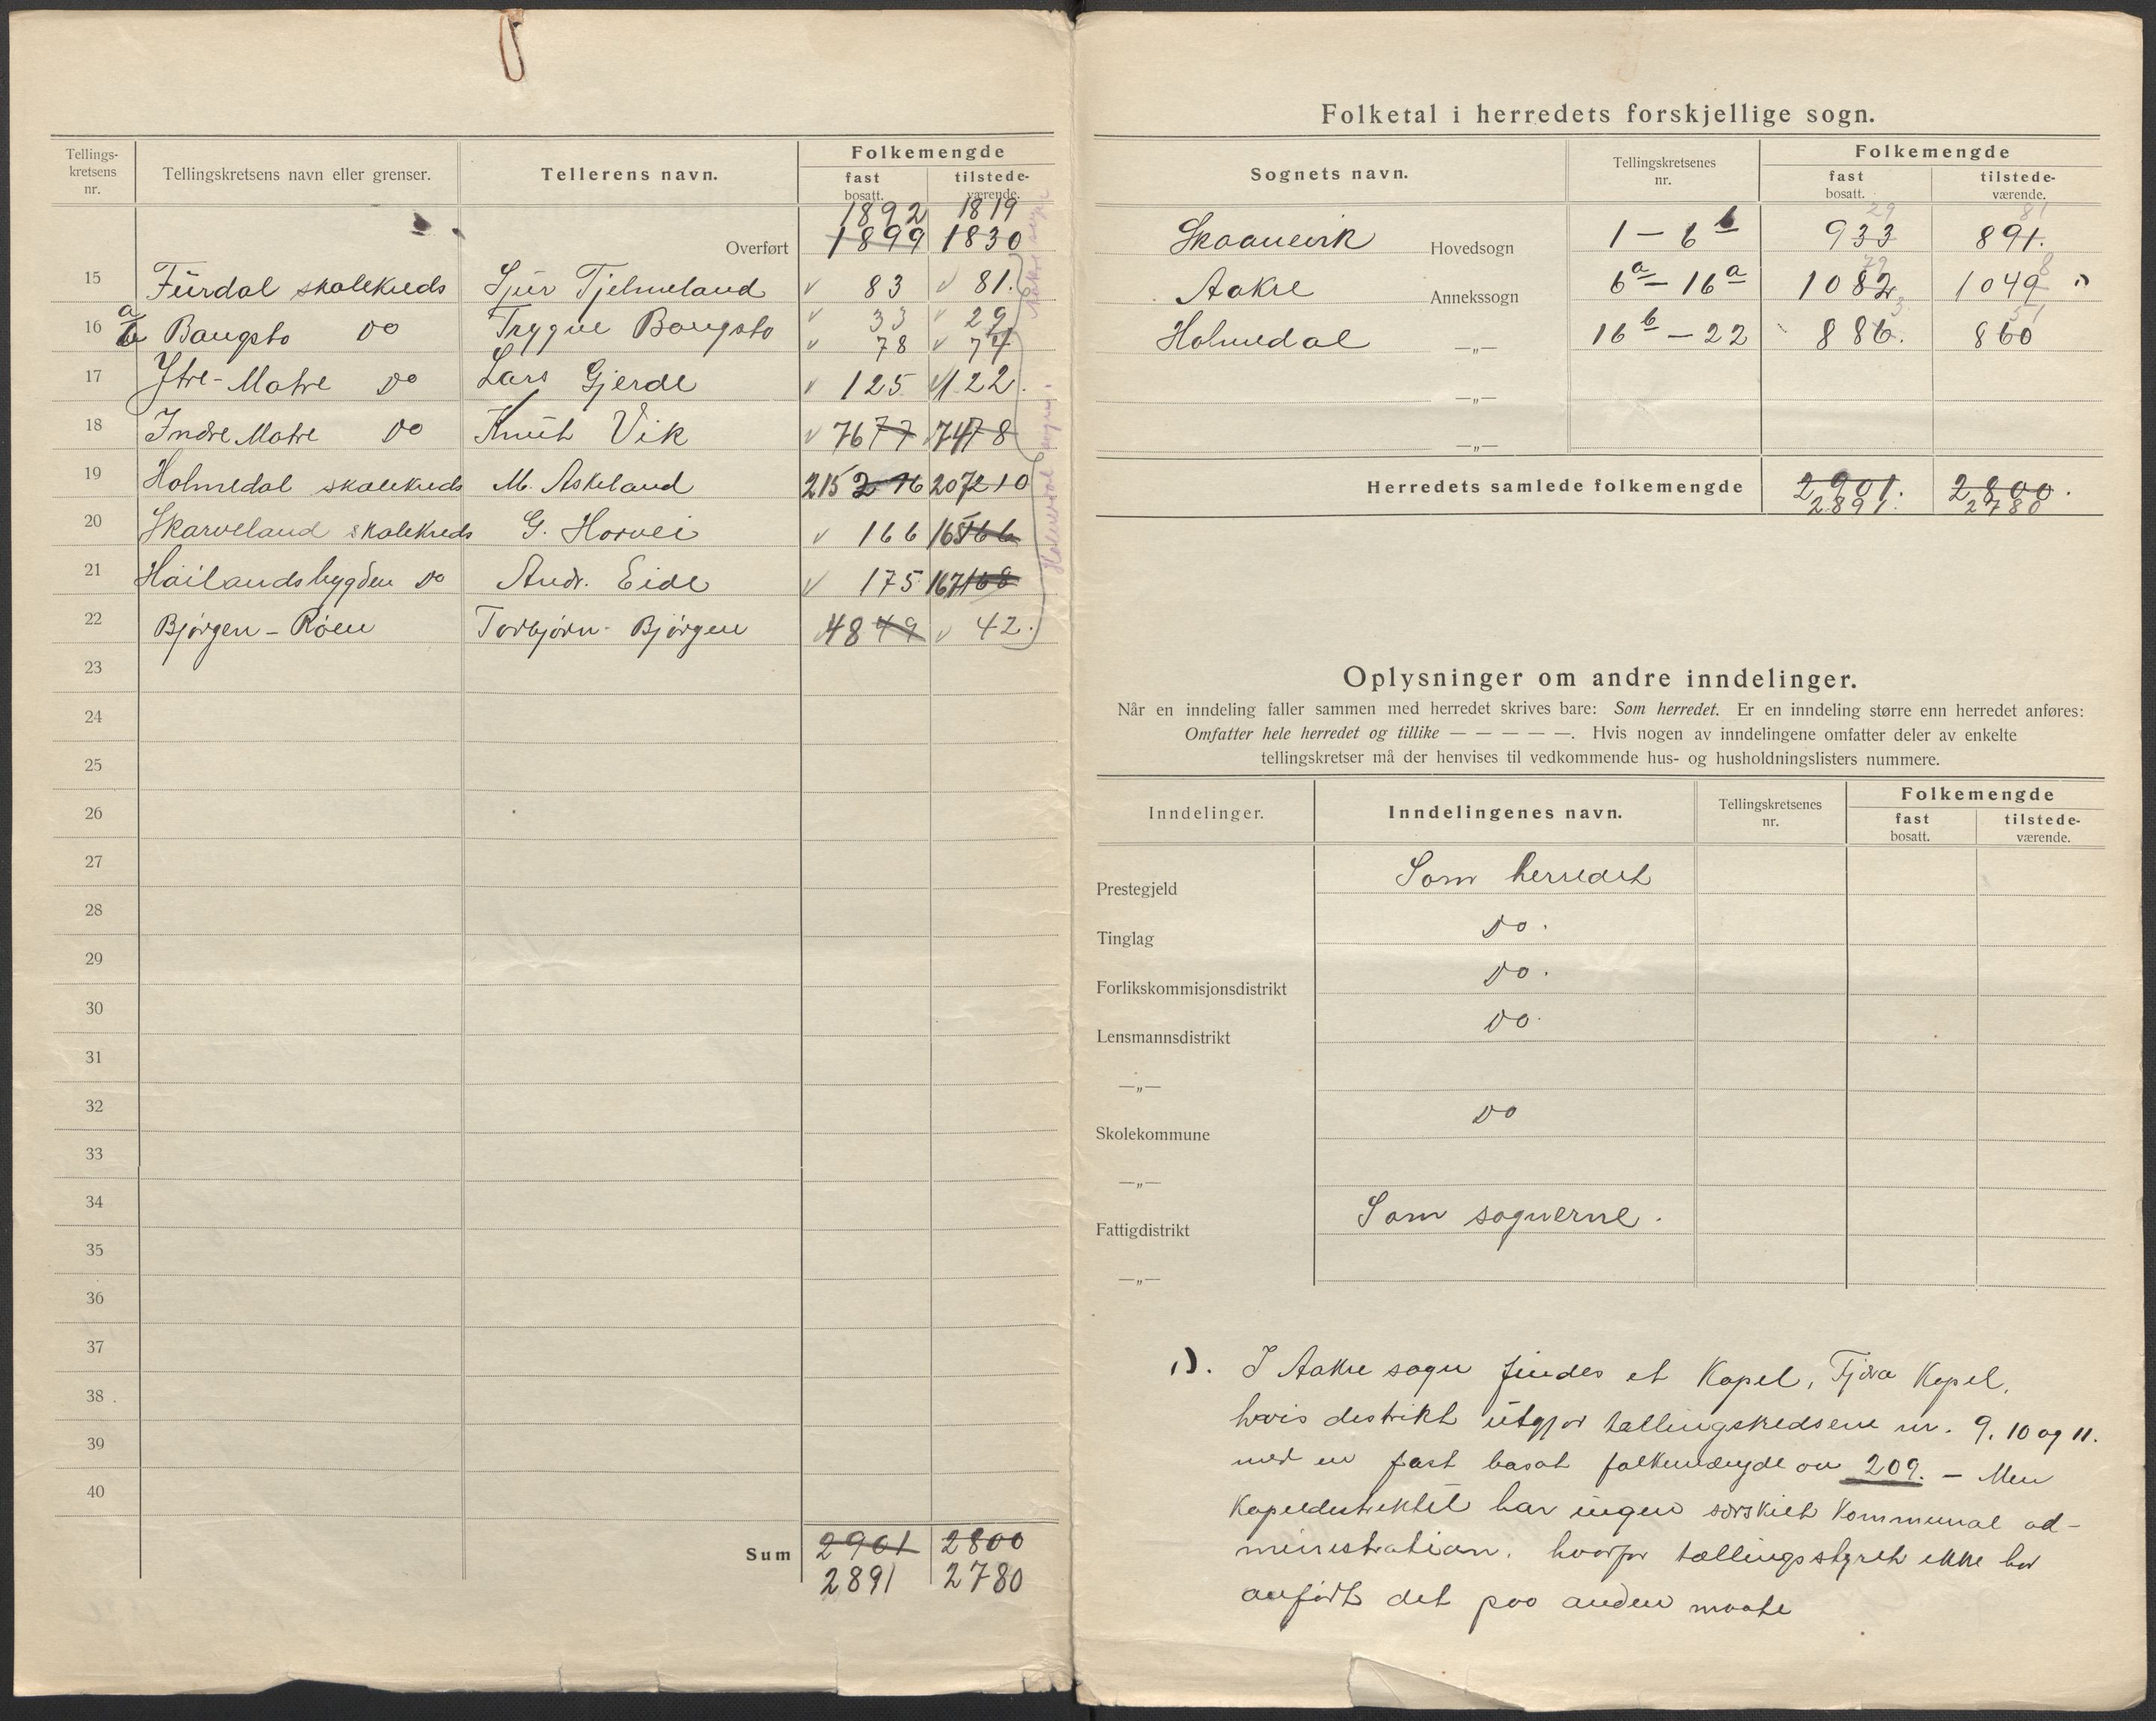 Tellings-
kretsens
nr.
Tellingskretsens navn eller grenser.
Tellerens navn.
Folkemengde
fast
bosatt.
tilstede-
værende.
1892 1819
Overført 1899 1830
15 Furdal skolekreds Sjur Tjelmeland 83 81.
a 33 29
16 b Baugsto do Trygve Baugsto 78 74
17 Ytre-Matre do Lars Gjerde 125 122.
18 Indre Matre do Knut Vik 76 77 74 78
19 Holmedal skolekreds M. Askeland 215 216 207 210
20 Skarveland skolekreds G. Horvei 166 165 166
21 Håilandsbygden do Andr. Eide 175 167 168
22 Bjørgen - Røen Torbjørn Bjørgen 48 49 42.
23
24
25
26
27
28
29
30
31
32
33
34
35
36
37
38
39
40
Sum 2901 2800
2891 2780
Aakre sogn
Holmedal sogn
Folketal i herredets forskjellige sogn.
Sognets navn.
Tellingskretsenes
nr.
Folkemengde
fast
bosatt.
tilstede-
værende.
29 81
Skaanevik Hovedsogn 1 - 6 b 933 891.
79 8
Aakre Annekssogn 6a - 16a 1082 1049 1)
3 51
Holmedal —„— 16b - 22 886. 860
—„—
—„—
Herredets samlede folkemengde 2901. 2800.
2891. 2780
Oplysninger om andre inndelinger.
Når en inndeling faller sammen med herredet skrives bare: Som herredet. Er en inndeling større enn herredet anføres:
Omfatter hele herredet og tillike — — — — —. Hvis nogen av inndelingene omfatter deler av enkelte
tellingskretser må der henvises til vedkommende hus- og husholdningslisters nummere.
Inndelinger.
Inndelingenes navn.
Tellingskretsenes
nr.
Folkemengde
fast
bosatt.
tilstede-
værende.
Prestegjeld Som herredet
Tinglag do.
Forlikskommisjonsdistrikt do.
Lensmannsdistrikt do.
—„—
Skolekommune do
—„—
Fattigdistrikt Som sognerne.
—„—
1). I Aakre sogn findes et Kapel, Fjæra Kapel,
hvis distrikt utgjør tællingskredsene nr. 9. 10 og 11.
med en fast bosat folkemængde av 209. — Men
Kapeldistriktet har ingen særskilt kommunal ad-
ministration, hvorfor tællingsstyret ikke har
anført det paa anden maate